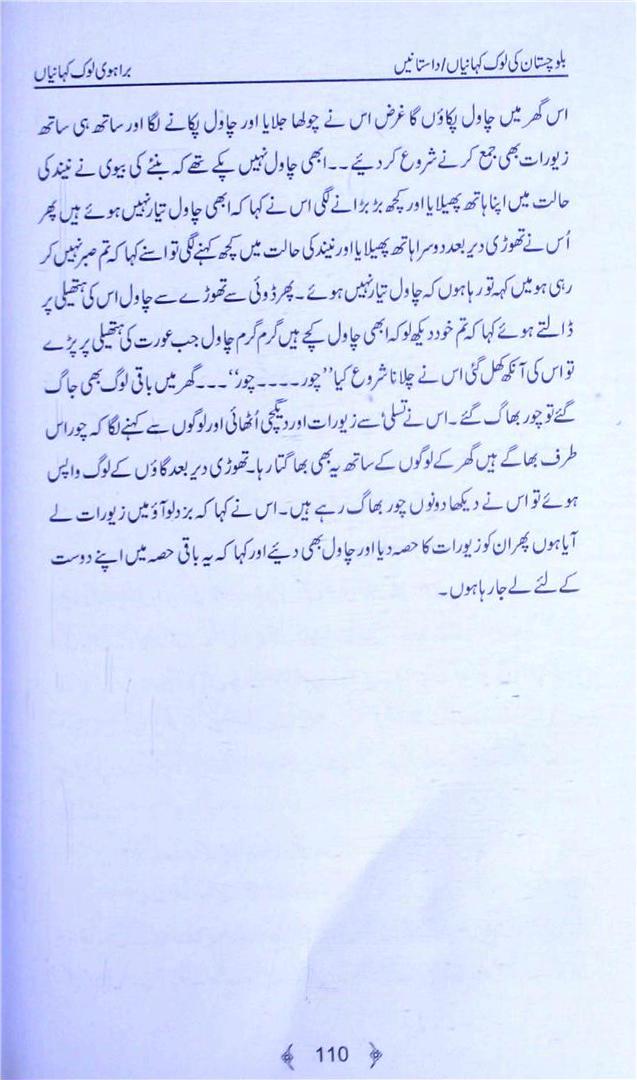 بلوچستان کی لوک کہانیاں/داستانیں
براہوی لوک کہانیاں
اس گھر میں چاول پکاؤں گا غرض اس نے چولھا جلایا اور چاول پکانے لگا اور ساتھ ہی ساتھ
زیورات بھی جمع کرنے شروع کر دئیے ۔۔ ابھی چاول نہیں پکے تھے کہ بنئے کی بیوی نے نیند کی
حالت میں اپنا ہاتھ پھیلایا اور کچھ بڑبڑانے لگی اس نے کہا کہ ابھی چاول تیار نہیں ہوئے ہیں پھر
اُس نے تھوڑی دیر بعد دوسرا ہاتھ پھیلایا اور نیند کی حالت میں کچھ کہنے لگی تو اسنے کہا کہ تم صبر نہیں کر
رہی ہو میں کہہ تو رہا ہوں کہ چاول تیار نہیں ہوئے ۔ پھر ڈوئی سے تھوڑے سے چاول اس کی ہتھیلی پر
ڈالتے ہوئے کہا کہ تم خود دیکھ لو کہ ابھی چاول کچے ہیں گرم گرم چاول جب عورت کی ہتھیلی پر پڑے
تو اس کی آنکھ کھل گئی اس نے چلانا شروع کیا ”چور ۔۔۔۔ چور“ ۔۔۔ گھر میں باقی لوگ بھی جاگ
گئے تو چور بھاگ گئے ۔ اس نے تسلی سے زیورات اور دیگچی اُٹھائی اور لوگوں سے کہنے لگا کہ چور اس
طرف بھاگے ہیں گھر کے لوگوں کے ساتھ یہ بھی بھاگتا رہا۔ تھوڑی دیر بعد گاؤں کے لوگ واپس
ہوئے تو اس نے دیکھا دونوں چور بھاگ رہے ہیں ۔ اس نے کہا کہ بزدلو آؤ میں زیورات لے
آیا ہوں پھر ان کو زیورات کا حصہ دیا اور چاول بھی دئیے اور کہا کہ یہ باقی حصہ میں اپنے دوست
کے لئے لے جا رہا ہوں ۔
110